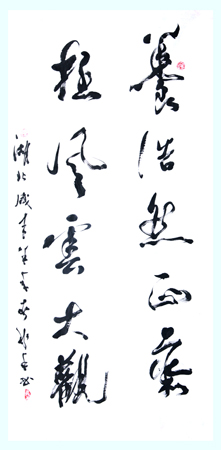 養浩然正氣
極風雲大觀
湖北